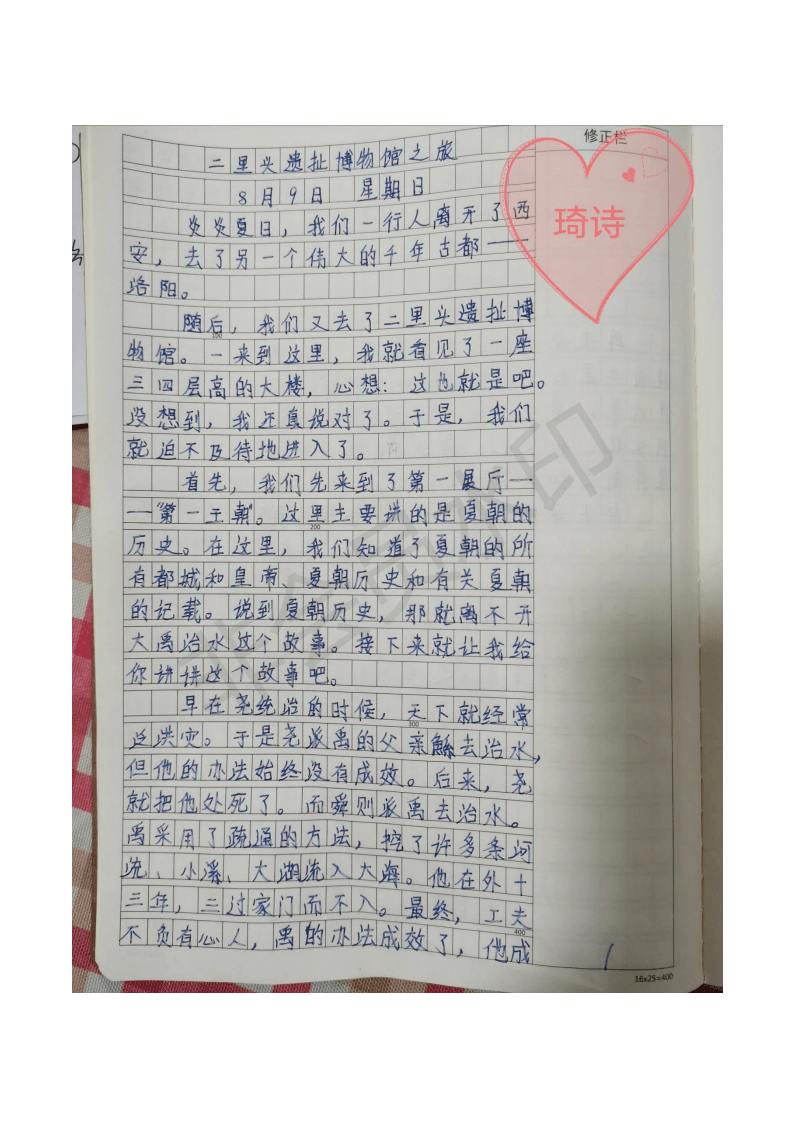 修正栏
琦诗
二里头遗址博物馆之旅
8月9日 星期日
炎炎夏日，我们一行人离开了西
安，去了另一个伟大的千年古都——
洛阳。
随后，我们又去了二里头遗址博
物馆。一来到这里，我就看见了一座
三四层高的大楼，心想：这也就是吧。
没想到，我还真说对了。于是，我们
就迫不及待地进入了。
首先，我们先来到了第一展厅—
—“第一王朝”。这里主要讲的是夏朝的
历史。在这里，我们知道了夏朝的所
有都城和皇帝、夏朝历史和有关夏朝
的记载。说到夏朝历史，那就离不开
大禹治水这个故事。接下来就让我给
你讲讲这个故事吧。
早在尧统治的时候，天下就经常
泛洪灾。于是尧派禹的父亲鲧去治水，
但他的办法始终没有成效。后来，尧
就把他处死了。而舜则派禹去治水。
禹采用了疏通的方法，挖了许多条河
流、小溪、大湖流入大海。他在外十
三年，三过家门而不入。最终，工夫
不负有心人，禹的办法成效了，他成
100
200
300
400
1
16x25=400